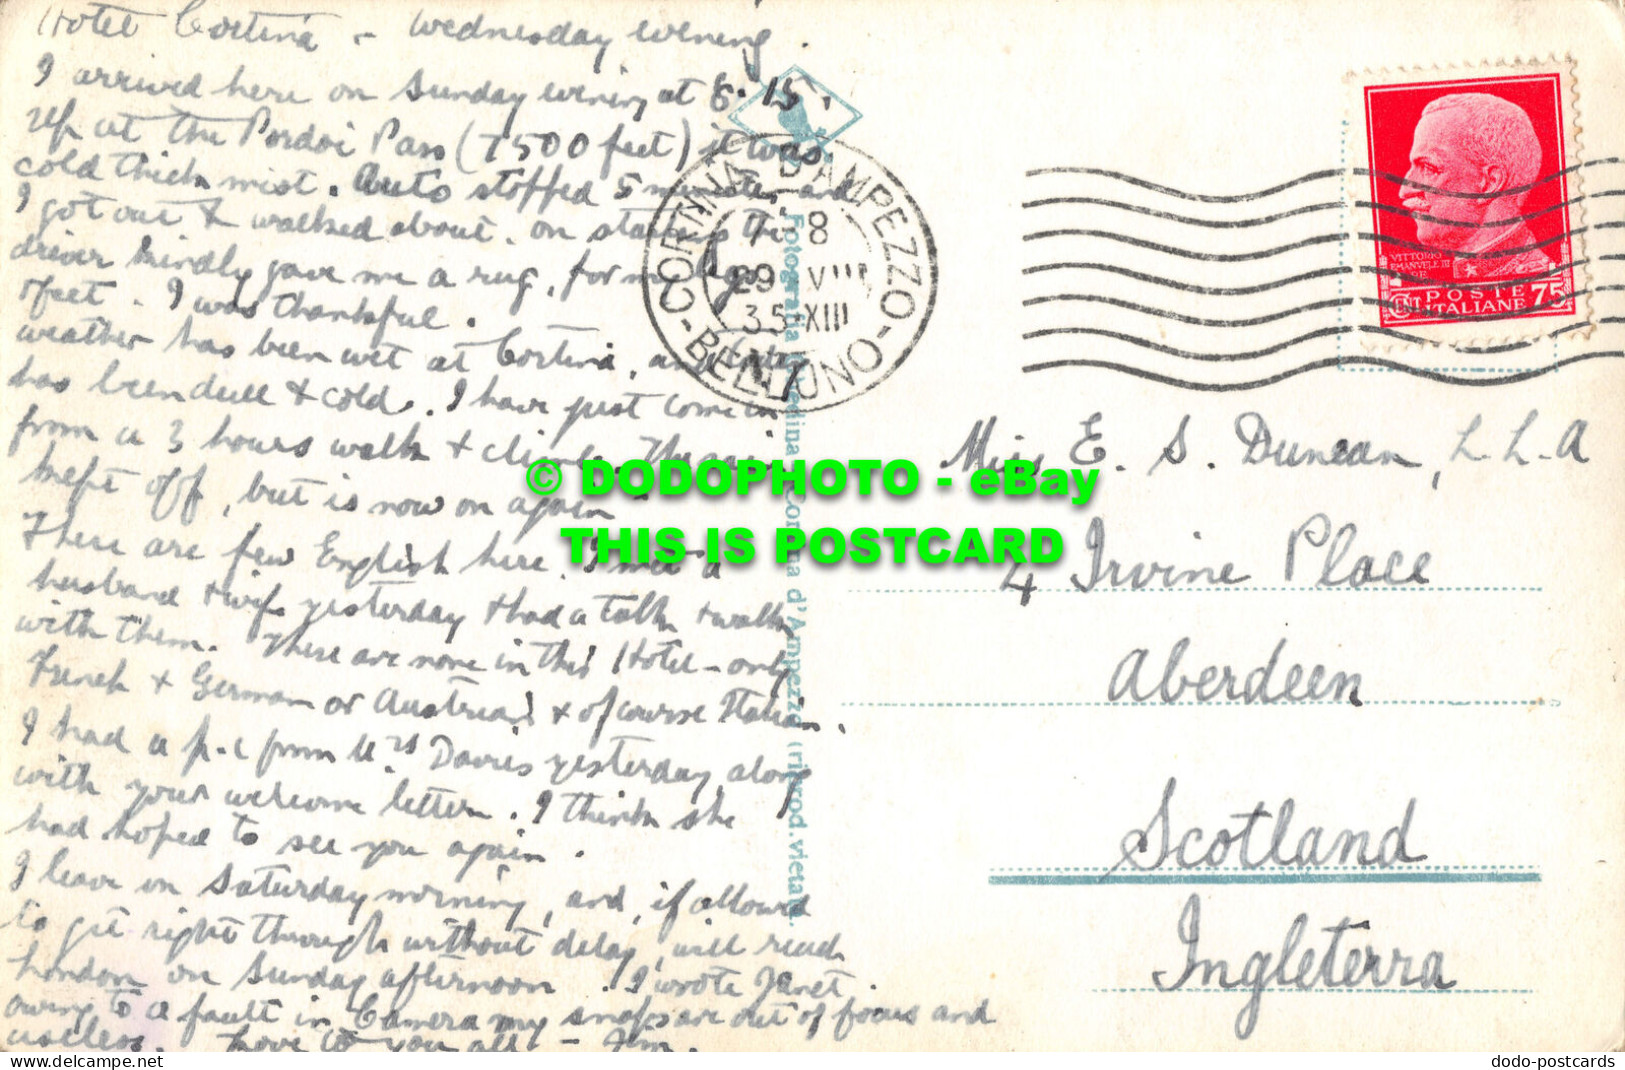 Hotel Cortina - Wednesday evening.
I arrived here on Sunday evening at 6.15.
up at the Pordoi Pass (7500 feet) it was
cold thick mist. Auto stopped 5 minutes and
I got out & walked about. on starting the
driver kindly gave me a rug, for my legs
& feet. I was thankful.
weather has been wet at Cortina, and
has been dull & cold. I have just come in
from a 3 hours walk & climb. The rain
kept off, but is now on again
There are few English here. I met a
husband & wife yesterday & had a talk & walk
with them. There are none in this Hotel - only
French & German or Austrian & of course Italian.
I had a p.c from Mrs Davies yesterday along
with your welcome letter. I think she
had hoped to see you again.
I leave on Saturday morning, and, if allowed
to get right through without delay, will reach
London on Sunday afternoon. I wrote Janet.
owing to a fault in Camera my snaps are out of focus and
useless. Love to you all - Jim.
CORTINA D'AMPEZZO
-BELLUNO-
7-8
VIII
35-XIII
Fotografia Ghedina Cortina d'Ampezzo (riprod. vietata
VITTORIO
EMANUELE III
POSTE
ITALIANE
CENT 75
Miss E. S. Duncan, L.L.A
4 Irvine Place
Aberdeen
Scotland
Ingleterra
© DODOPHOTO - eBay
THIS IS POSTCARD
www.delcampe.net
dodo-postcards